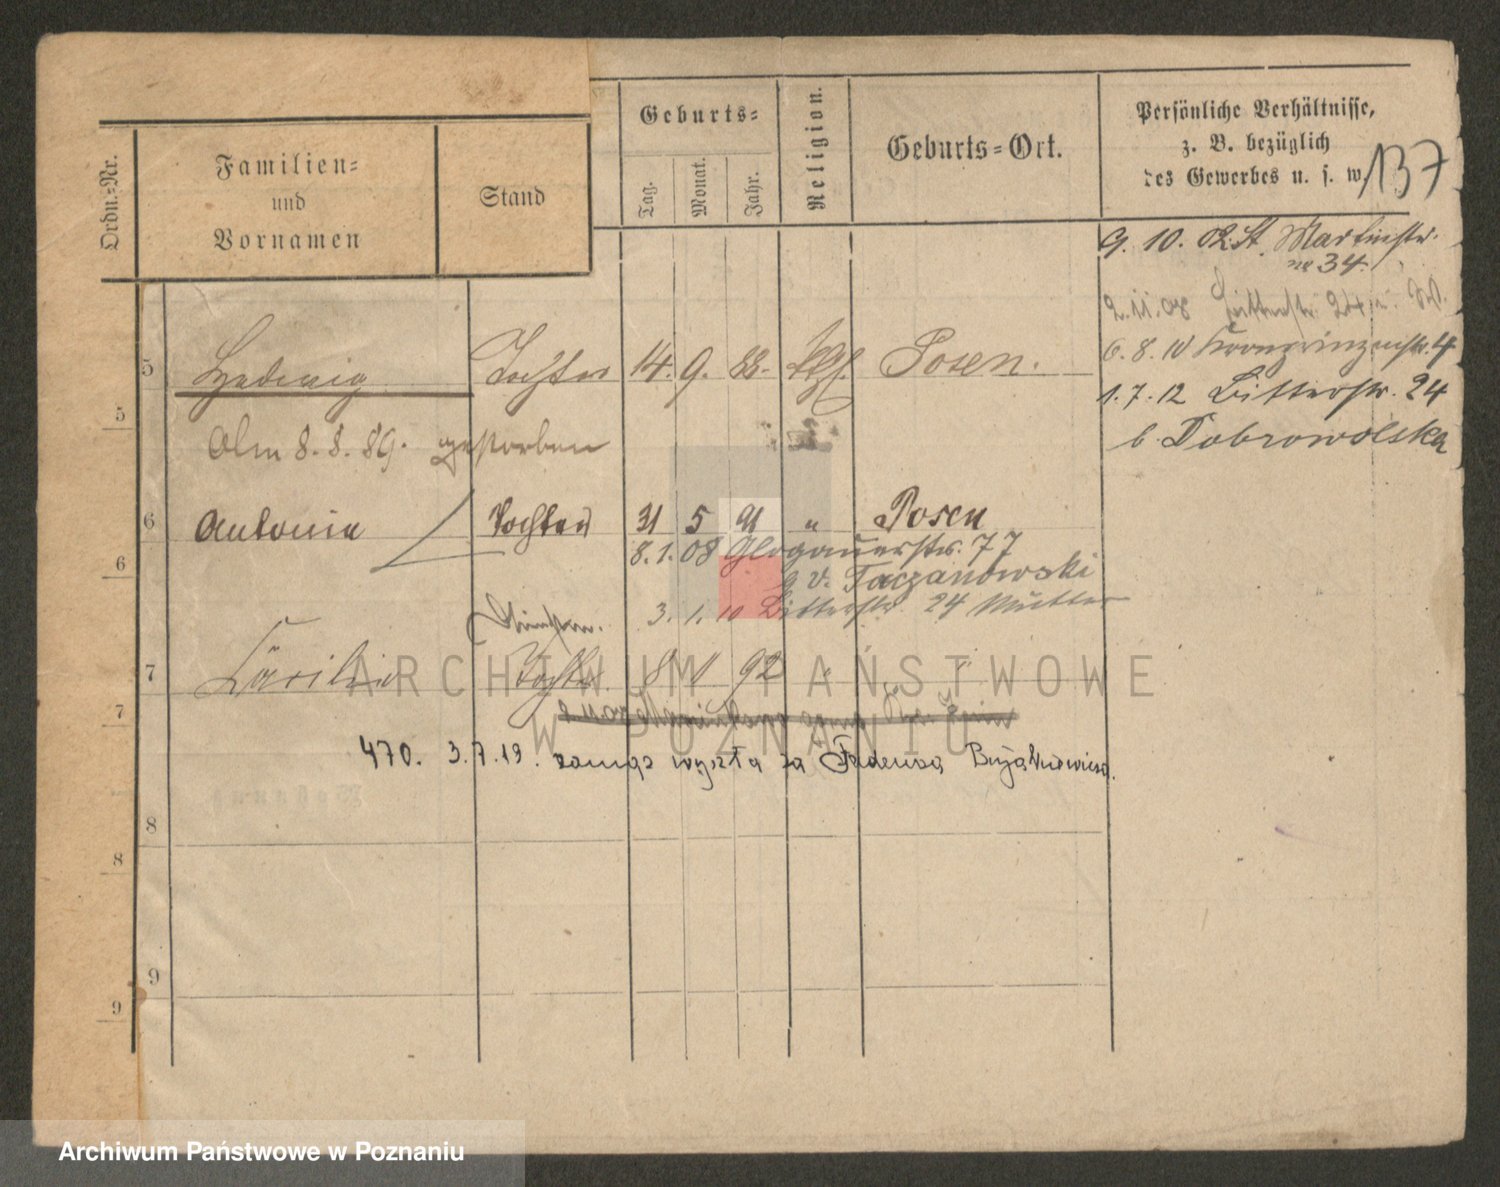 Ordn.=Nr.
Familien=
und
Vornamen
Stand
Geburts=
Tag.
Monat.
Jahr.
Religion.
Geburts=Ort.
Persönliche Verhältnisse,
z. B. bezüglich
des Gewerbes u. s. w.
137
9. 10. 02. St. Martinstr.
no 34.
2. 11. 08 24
6. 8. 10 Kronprinzenstr. 4
1. 7. 12 Bitterstr. 24
b. Dobrowolska
5 Hedwig Tochter 14. 9. 88. Posen.
5
Am 8. 8. 89. gestorben
6 Antonie Tochter 31 5 91 " Posen
8. 1. 08 Glogauerstr. 77
6
g v. Taczanowski
3. 1. 10 Bitterstr. 24 Mutter
7 Cäcilie Tochter 8 11 92 " "
7
470. 3.7.19. zamąz wyszła za Bujakiewicza.
8
8
9
9
ARCHIWUM PAŃSTWOWE
W POZNANIU
Archiwum Państwowe w Poznaniu